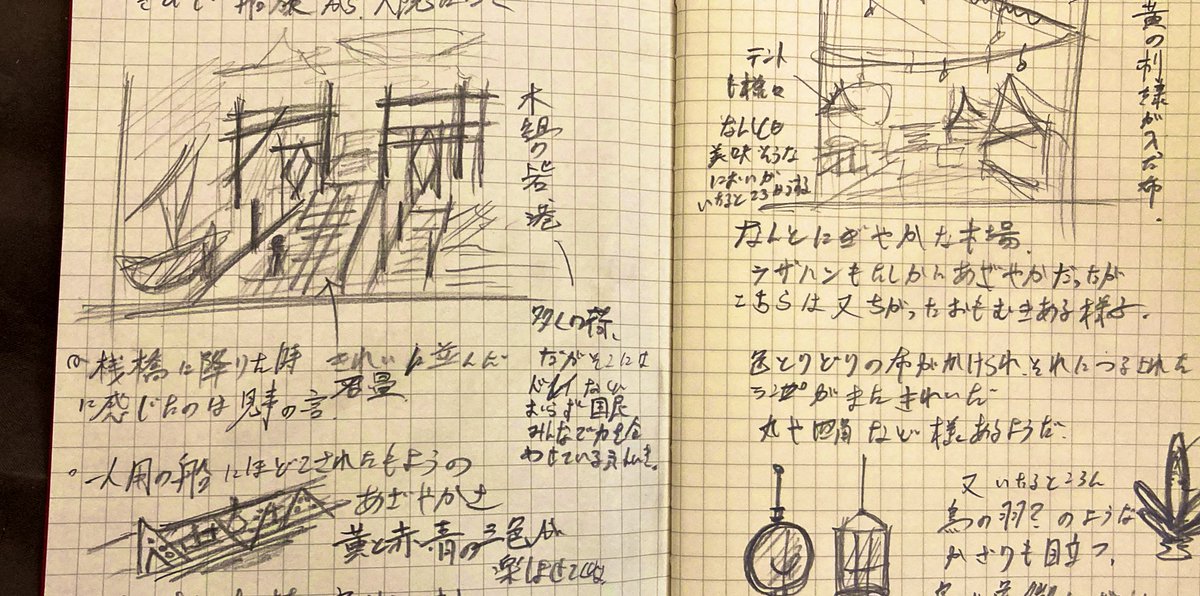 木組の
港
桟橋に降りた時
に感じたのは見事の一言
きれいに並んだ
石畳
多くの荷、
だがそこには
ドレイなど
おらず国民
みんなで力を合
わせている
一人用の船にほどこされたもようの
あざやかさ
黄と赤、青の三色が
楽しませてくれる
黄の刺繍が入った布.
テント
も様々
なんとも
美味そうな
においが
いたるところからする
なんとにぎやかな市場.
ラザハンもたしかにあざやかだったが
こちらは又ちがったおもむきある様子.
色とりどりの布がかけられ、それにつるされた
ランプがまたきれいだ
丸や四角など様々あるようだ.
又いたるところに
鳥の羽?のような
かざりも目立つ.